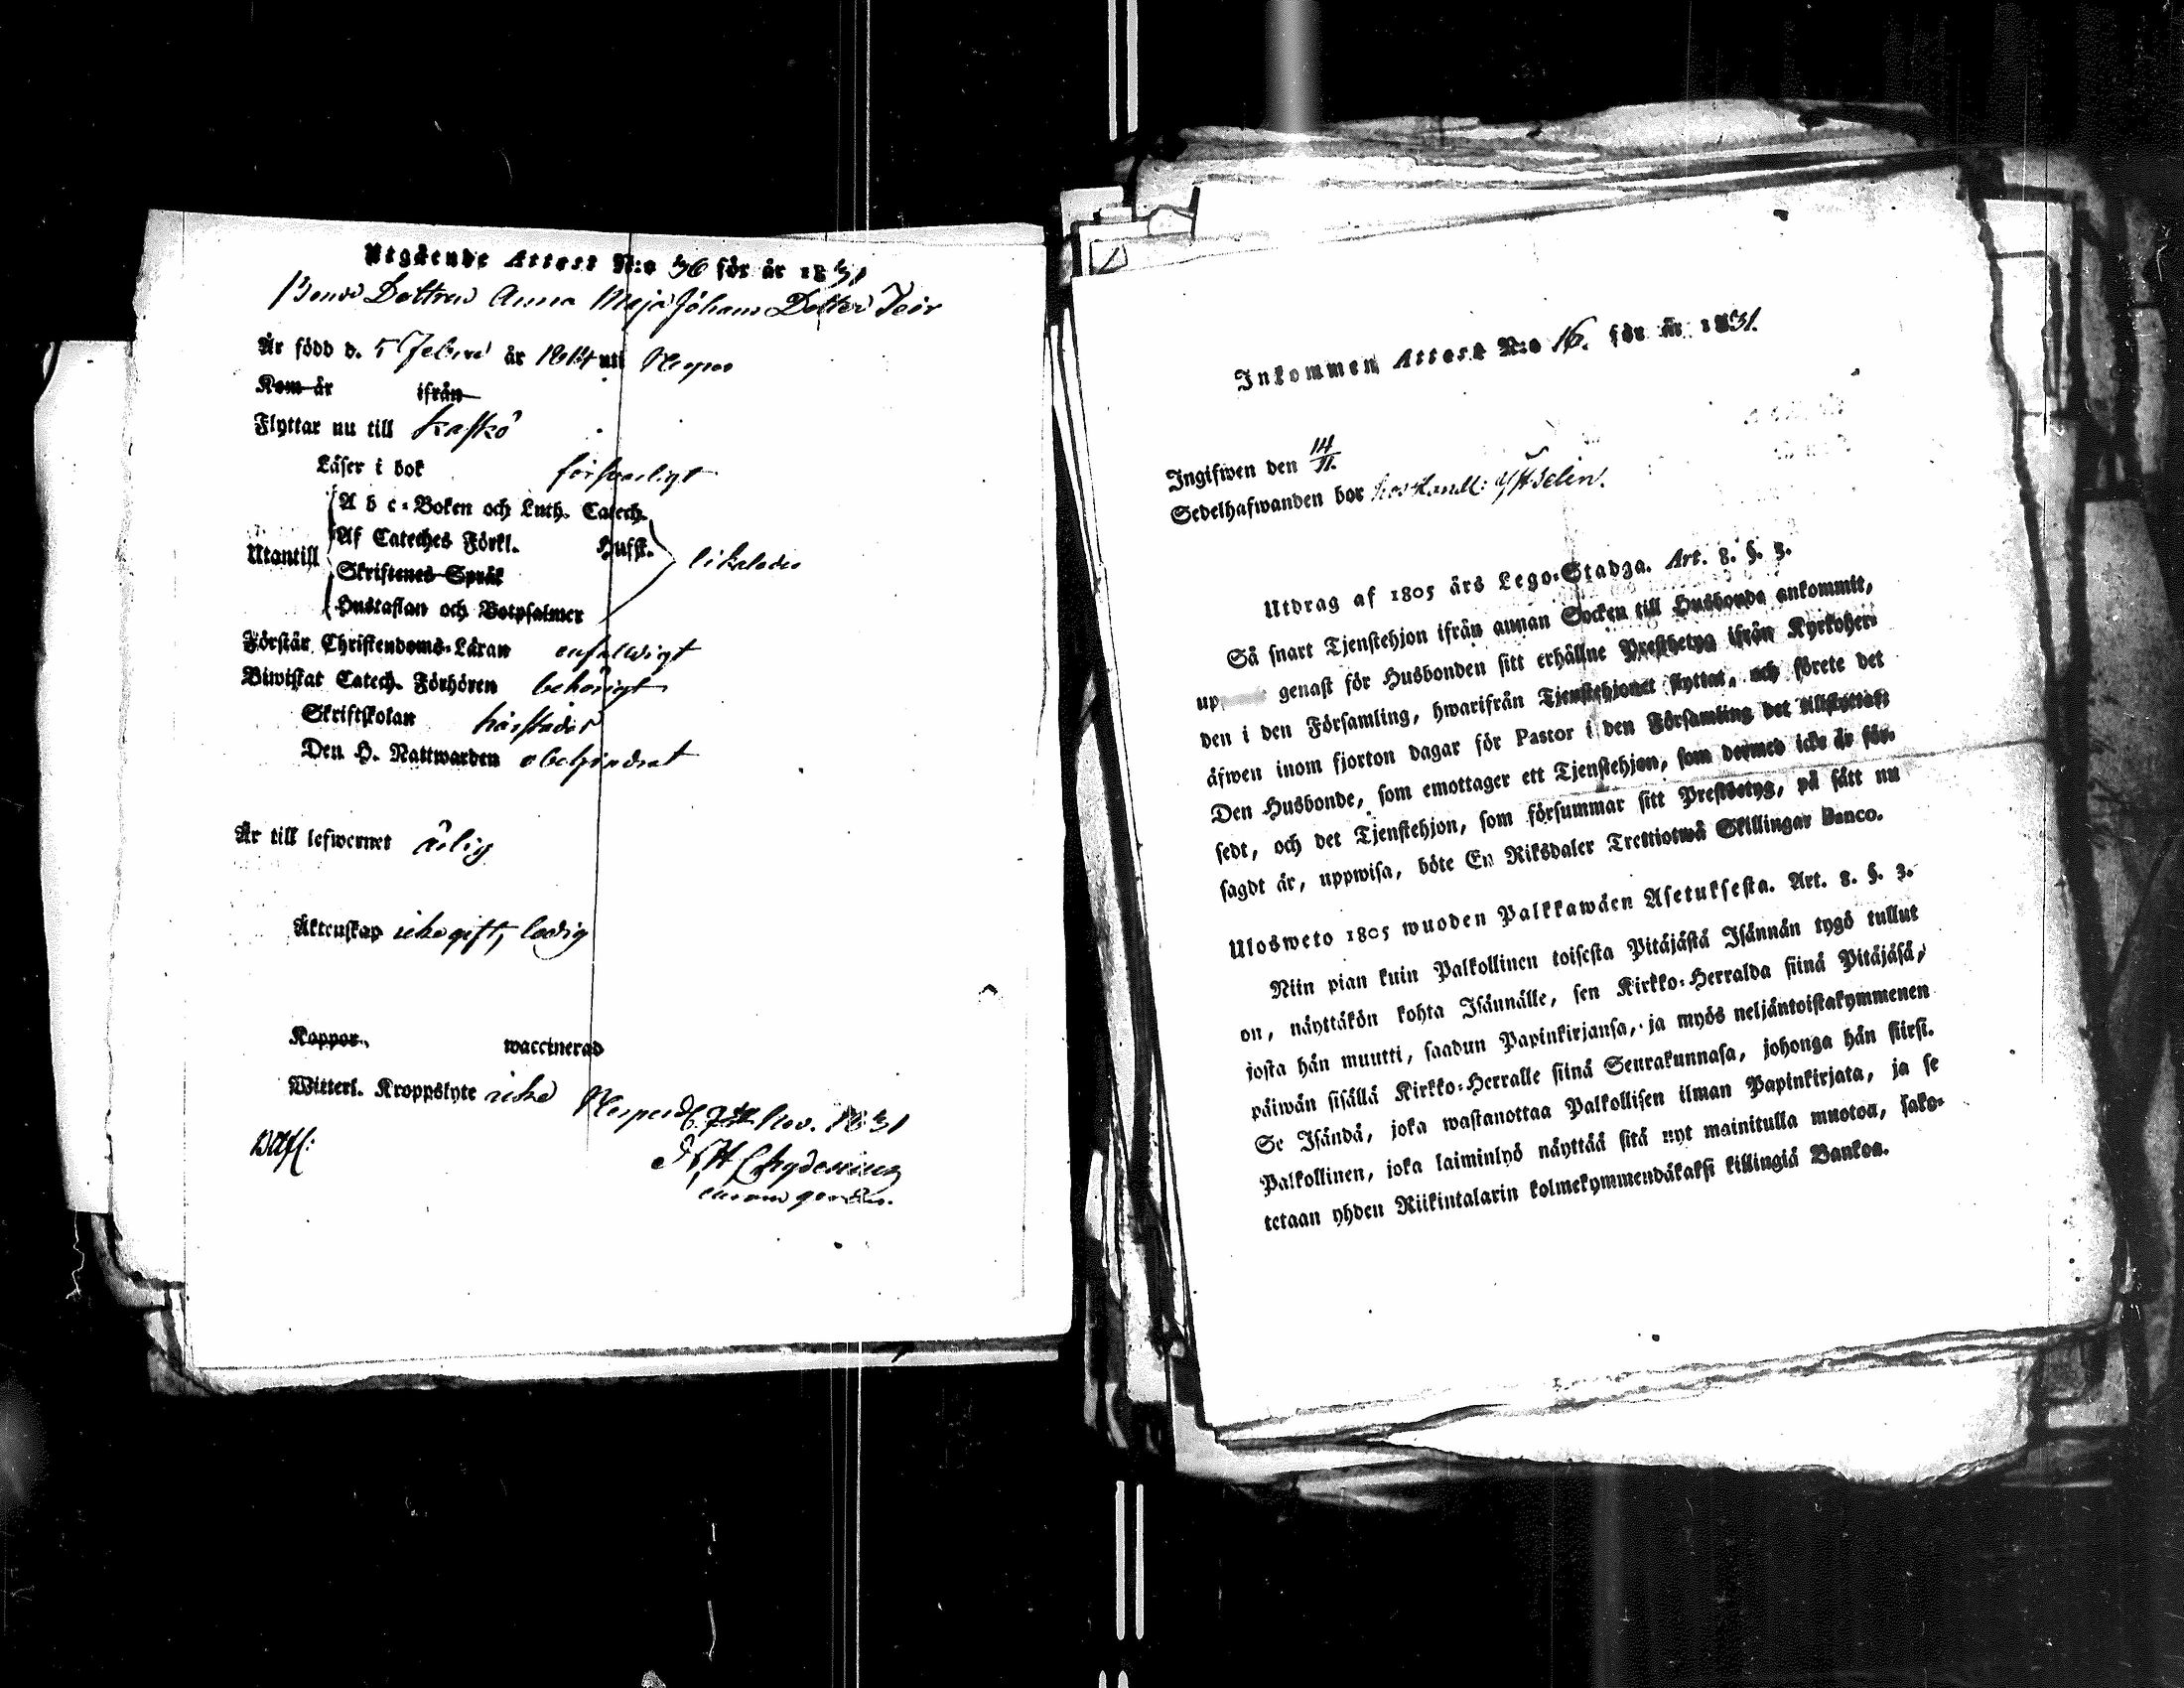 Utgående Attest N:o 36 för år 1831
Bonde Dottren Anna Maja Johans Dotter Teir
Är född d. 5 Febru år 1814 uti Nerpes
Kom år ifrån
Flyttar nu till Kaskö
Läser i bok försvarligt
Utantill
A b c-Boken och Luth. Catech.
Af Cateches Förkl. Hufst.
Skriftenes Språk
Hustaflan och Botpsalmer
likaledes
Förstår Christendoms-Läran enfaldigt
Biwistat Catech. Förhören behörigt
Skriftskolan härstädes
Den H. Nattwarden obehindrat
Är till lefwernet ärlig
Äktenskap icke gift, ledig
Koppor, waccinerad
Witterl. Kroppslyte icke
Nerpes d. 7 Nov. 1831
Chydenius
Inkommen Attest N:o 16. för år 1831.
Ingifwen den 14/11.
Sedelhafwanden bor hos Handl:
Utdrag af 1805 års Lego-Stadga. Art. 8. §. 3.
Så snart Tjenstehjon ifrån annan Socken till Husbonde ankommit,
up genast för Husbonden sitt erhållne Presthetyg ifrån Kyrkoher-
den i den Församling, hwarifrån Tjenstehjonet flyttat, och förete det
äfwen inom fjorton dagar för Pastor i den Församling det
Den Husbonde, som emottager ett Tjenstehjon, som dermed icke är för-
sedt, och det Tjenstehjon, som försummar sitt Prestbetyg, på sätt nu
sagdt är, uppwisa, böte En Riksdaler Trettiotwå Skillingar Banco.
Ulosweto 1805 wuoden Palkkawäen Asetuksesta. Art. 8. §. 3.
Niin pian kuin Palkollinen toisesta Pitäjästä Isännän tygö tullut
on, näyttäkön kohta Isännälle, sen Kirkko-Herralda siinä Pitäjäsä,
josta hän muutti, saadun Papinkirjansa, ja myös neljäntoistakymmenen
päiwän sisällä Kirkko-Herralle siinä Seurakunnasa, johonga hän siirsi.
Se Isändä, joka wastanottaa Palkollisen ilman Papinkirjata, ja se
Palkollinen, joka laiminlyö näyttää sitä nyt mainitulla muotoa, sako-
tetaan yhden Riikintalarin kolmekymmendäkaksi killingiä Bankoa.